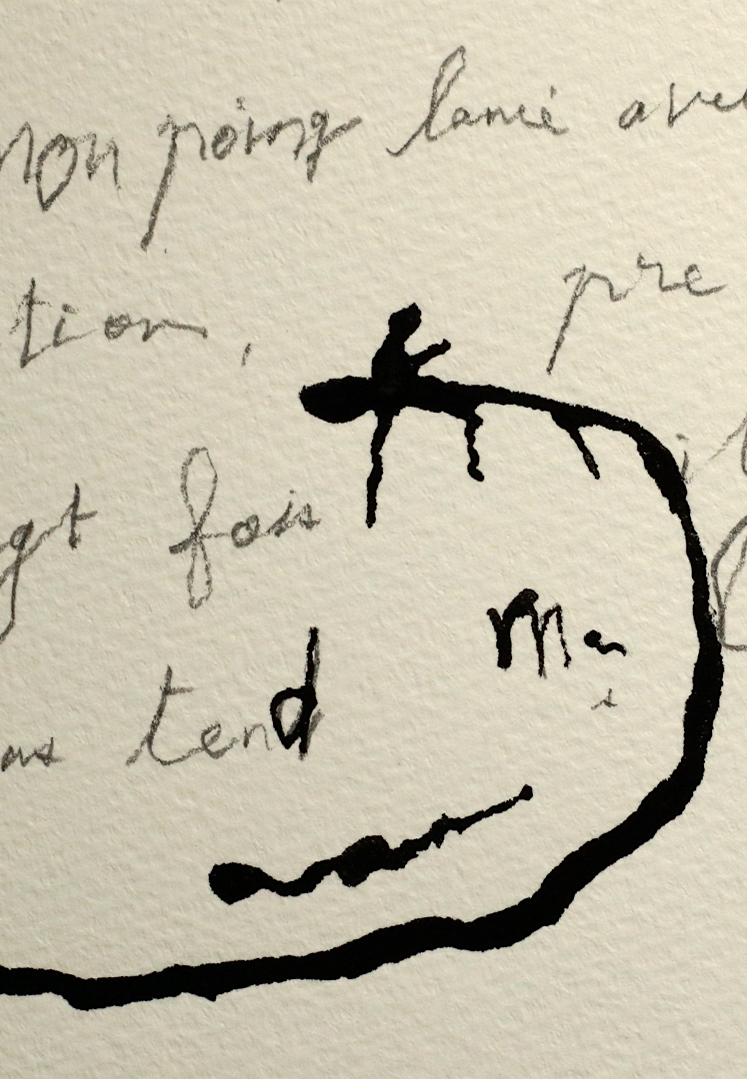 mon poing lancé ave
tion, pre
gt fois
tend